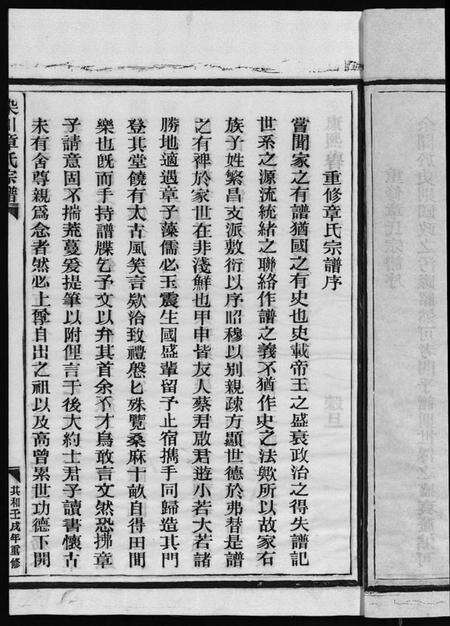 重修章氏宗譜序
嘗聞家之有譜猶國之有史也史載帝王之盛衰政治之得失譜記
世系之源流統緒之聯絡作譜之義不猶作史之法歟所以故家右
族子姓繁昌支派敷衍以序昭穆以別親疎方顯世德於弗替是譜
之有裨於家世在非淺鮮也甲申皆友人蔡君啟君遊小若大若諸
勝地適遇章子藻儒必玉震生國盛輩留予止宿携手同歸造其門
登其堂饒有太古風笑言欵洽致禮慇匕殊覽桑麻十畝自得田間
樂也旣而手持譜牒乞予文以弁其首余不才烏敢言文然恐拂章
子請意因不揣蕪蔓爰提筆以附俚言于後大約士君子讀書懷古
未有舍尊親爲念者然必上尊自出之祖以及高曾累世功德下開
川章氏宗譜
共和壬戌年重修